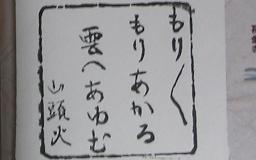 もり〱
もりあかる
雲へあゆむ
山頭火